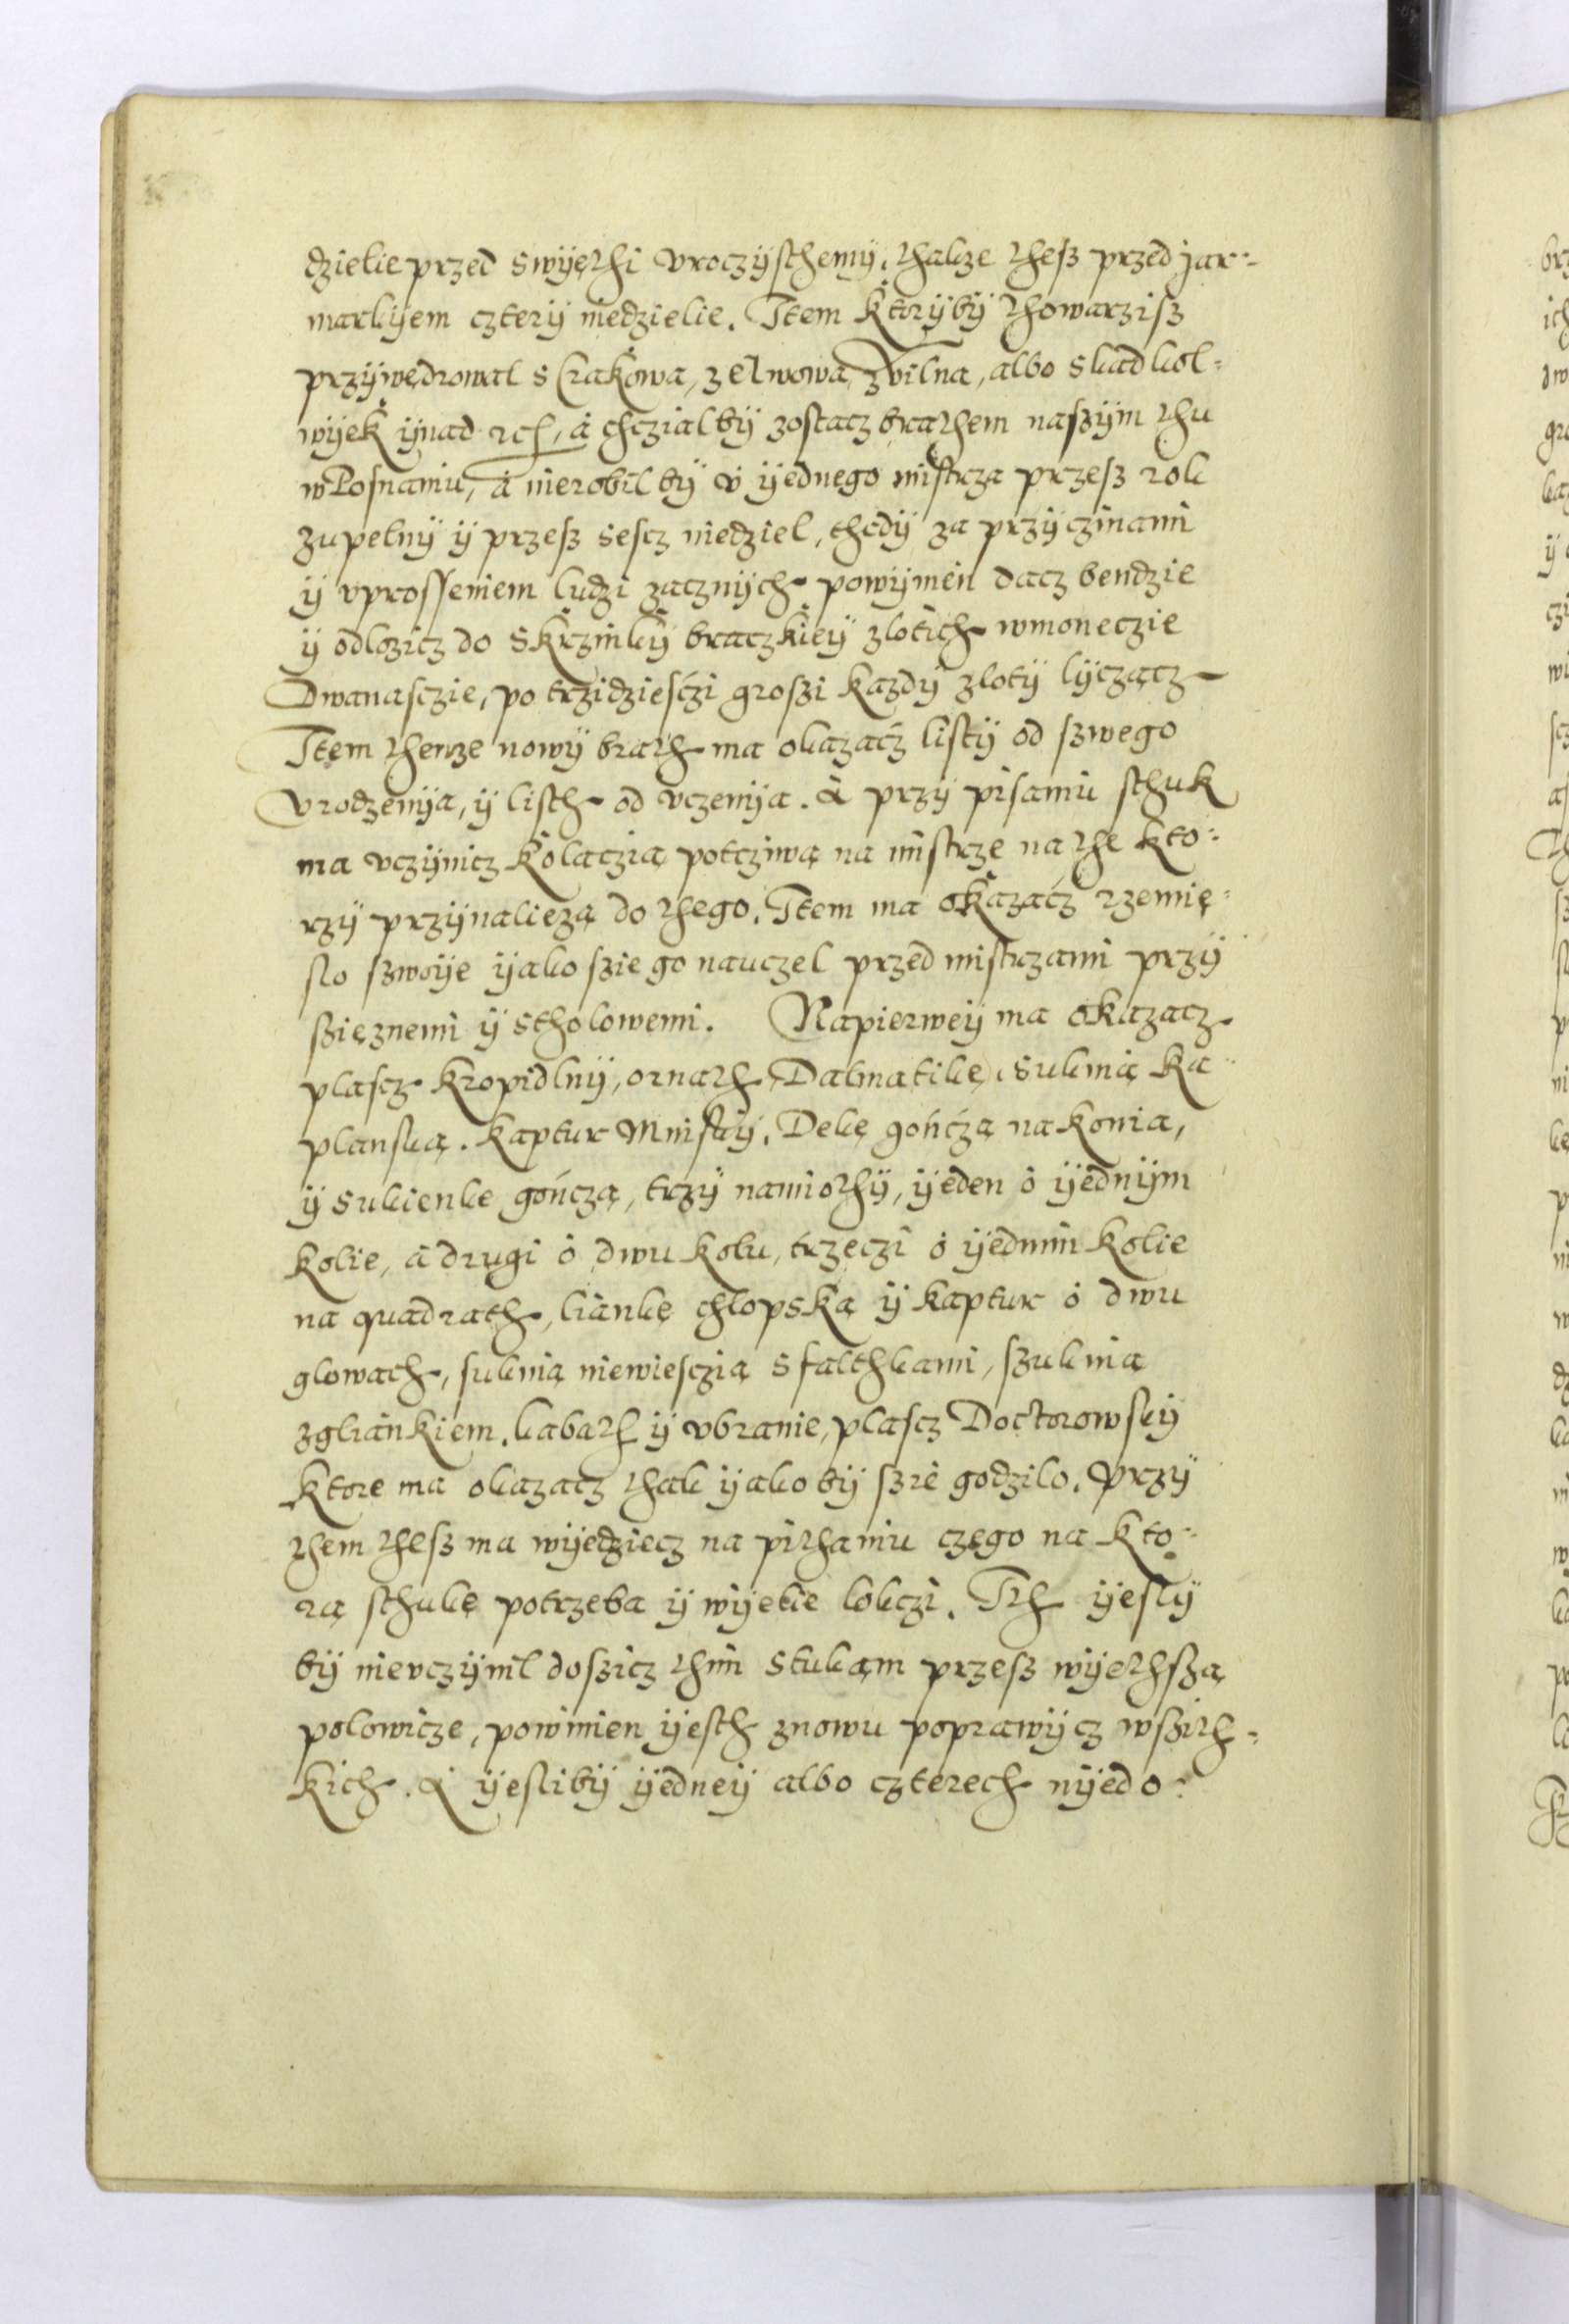 dzielie przed swÿęthi vroczÿsthemÿ, thakze thesz przed jar-
markÿem czterÿ niedzielie. Item Ktorÿbÿ thowarzisz
przÿwędrowal s Crakowa, ze lwowa, z vilna, albo skad kol-
wÿek ÿnad etc, á chczial bÿ zostacz brathem naszÿm thu
w Posnaniu, á nierobil bÿ v ÿednego mistrza przesz rok
zupelnÿ ÿ przesz sescz niedziel, thedÿ za przÿczinami
ÿ vprosseniem ludzi zacznÿch powÿnien dacz bendzie
ÿ odlozicz do skrzinkÿ braczkieÿ zlotich w moneczie
Dwanasczie, po trzidziesczi groszi kazdÿ zlotÿ lÿczącz
Item thenze nowÿ brath ma okazacz listÿ od szwego
Vrodzenÿa, ÿ listh od vczenÿa. A przÿ pisaniu sthuk
ma vczÿnicz kolaczią potcziwą na mistrze na the kto-
rzÿ przÿnaliezą do thego. Item ma okazacz rzemię-
slo szwoÿe ÿako szie go nauczel przed mistrzami przÿ
szięznemi ÿ stholowemi. Napierweÿ ma okazacz
plascz kropidlnÿ, ornath, Dalmatikę, suknią ka-
planską. Kaptur Mniskÿ, Dekę gończą na konia,
ÿ sukienkę gończą, trzÿ namiothÿ, ÿeden o ÿednÿm
kolie, á drugi o dwu kolu, trzeczi o ÿednim kolie
na quadrath, liankę chlopską ÿ kaptur o dwu
glowach, suknią niewiesczią s falthkami, szuknia
z gliankiem. kabath ÿ vbranie, plascz Doctorowskÿ
Ktore ma okazacz thak ÿako bÿ szie godzilo. Przÿ
them thesz ma wÿedziecz na pithaniu czego na kto-
rą sthukę potrzeba ÿ wÿelie lokczi. Ith ÿeslÿ
bÿ nievczÿnil doszicz thim stukam przesz wÿethszą
polowicze, powinien ÿesth znowu poprawÿcz wszith-
kich. A ÿeslibÿ ÿedneÿ albo czterech nÿedo-